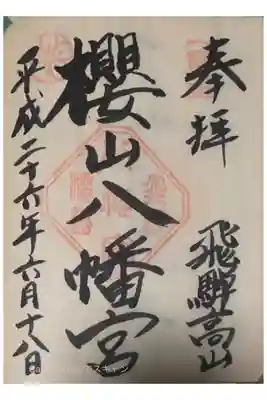 奉拝
飛騨高山
櫻山八幡宮
平成二十六年六月十八日